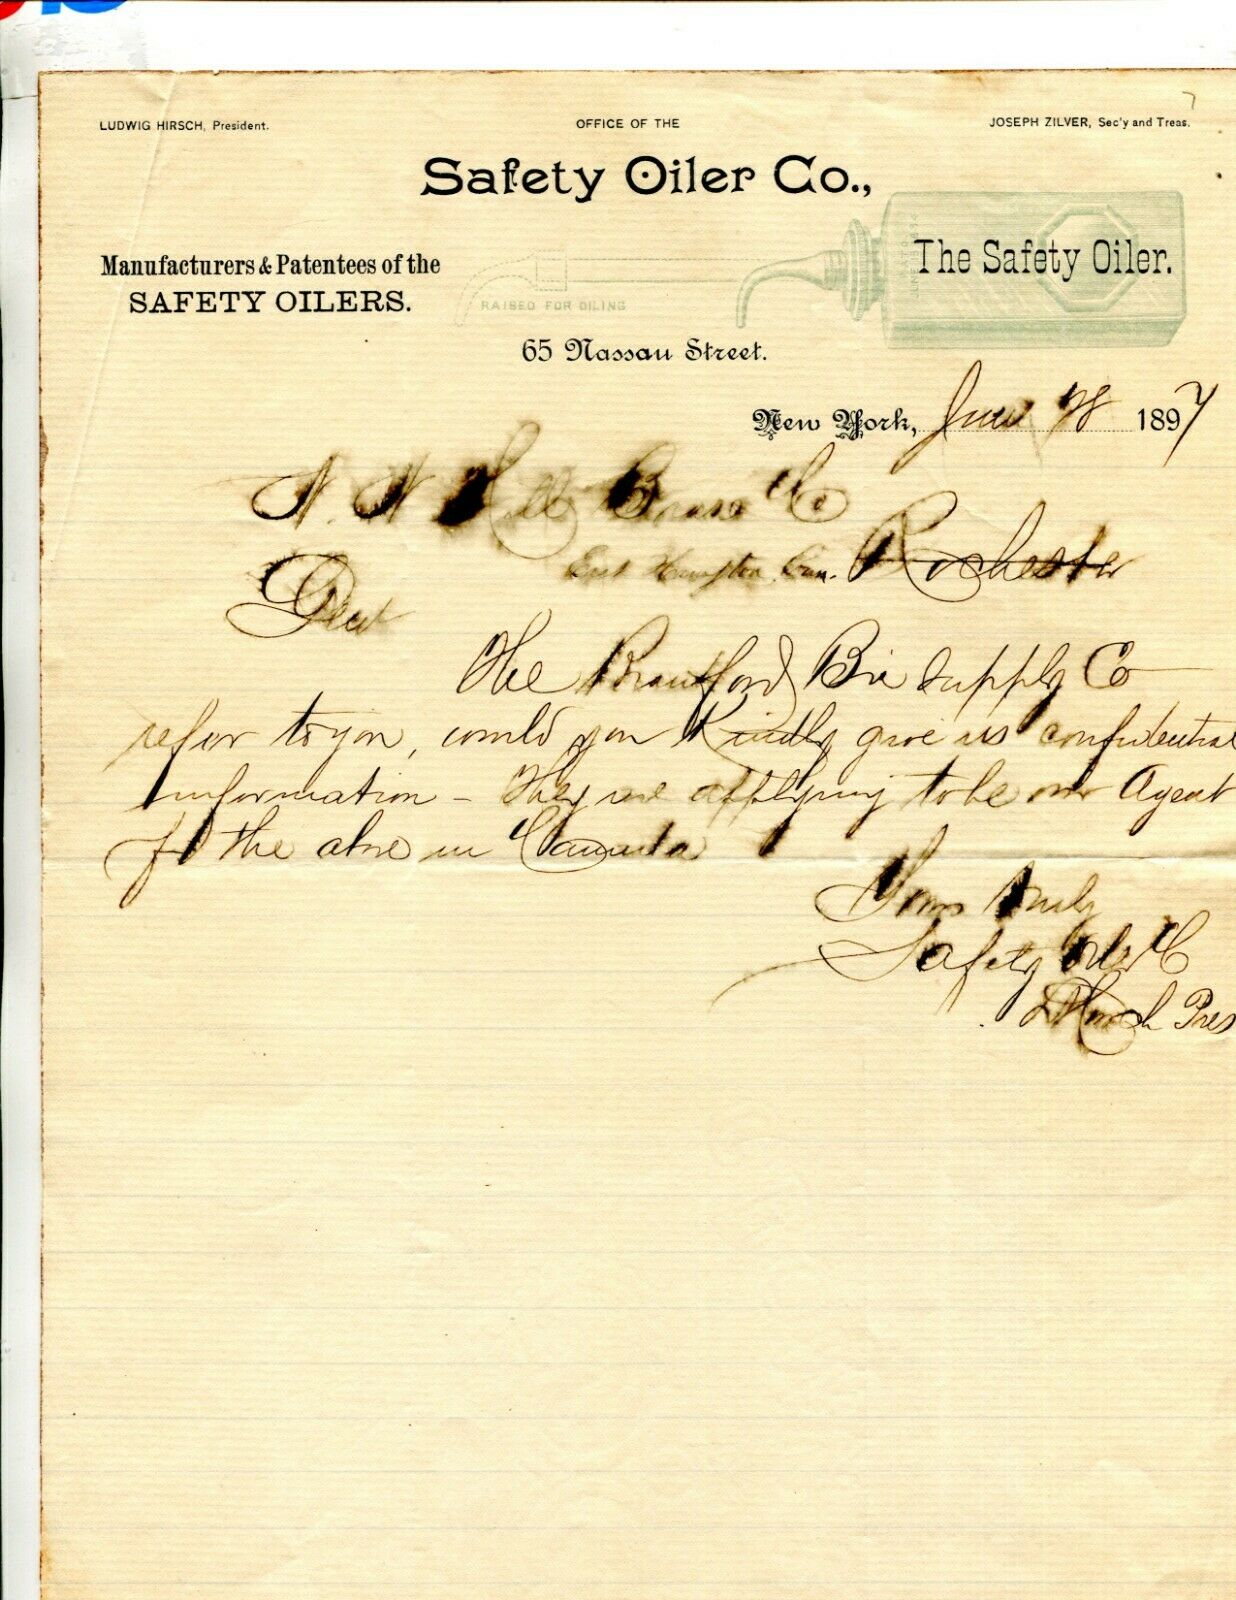 LUDWIG HIRSCH, President.
OFFICE OF THE
JOSEPH ZILVER, Sec'y and Treas.
Safety Oiler Co.,
Manufacturers & Patentees of the
SAFETY OILERS.
RAISED FOR OILING
The Safety Oiler.
65 Nassau Street.
New York, June 28 1897
N. N Hill Brass Co
East Hampton, Conn. Rochester
Gent
The Brantford Bi Supply Co
refer to you, could you Kindly give us confidential
information - They are applying to be our Agent
f the above in Canada
Yours truly
Safety Oiler Co
L Hirsch Pres